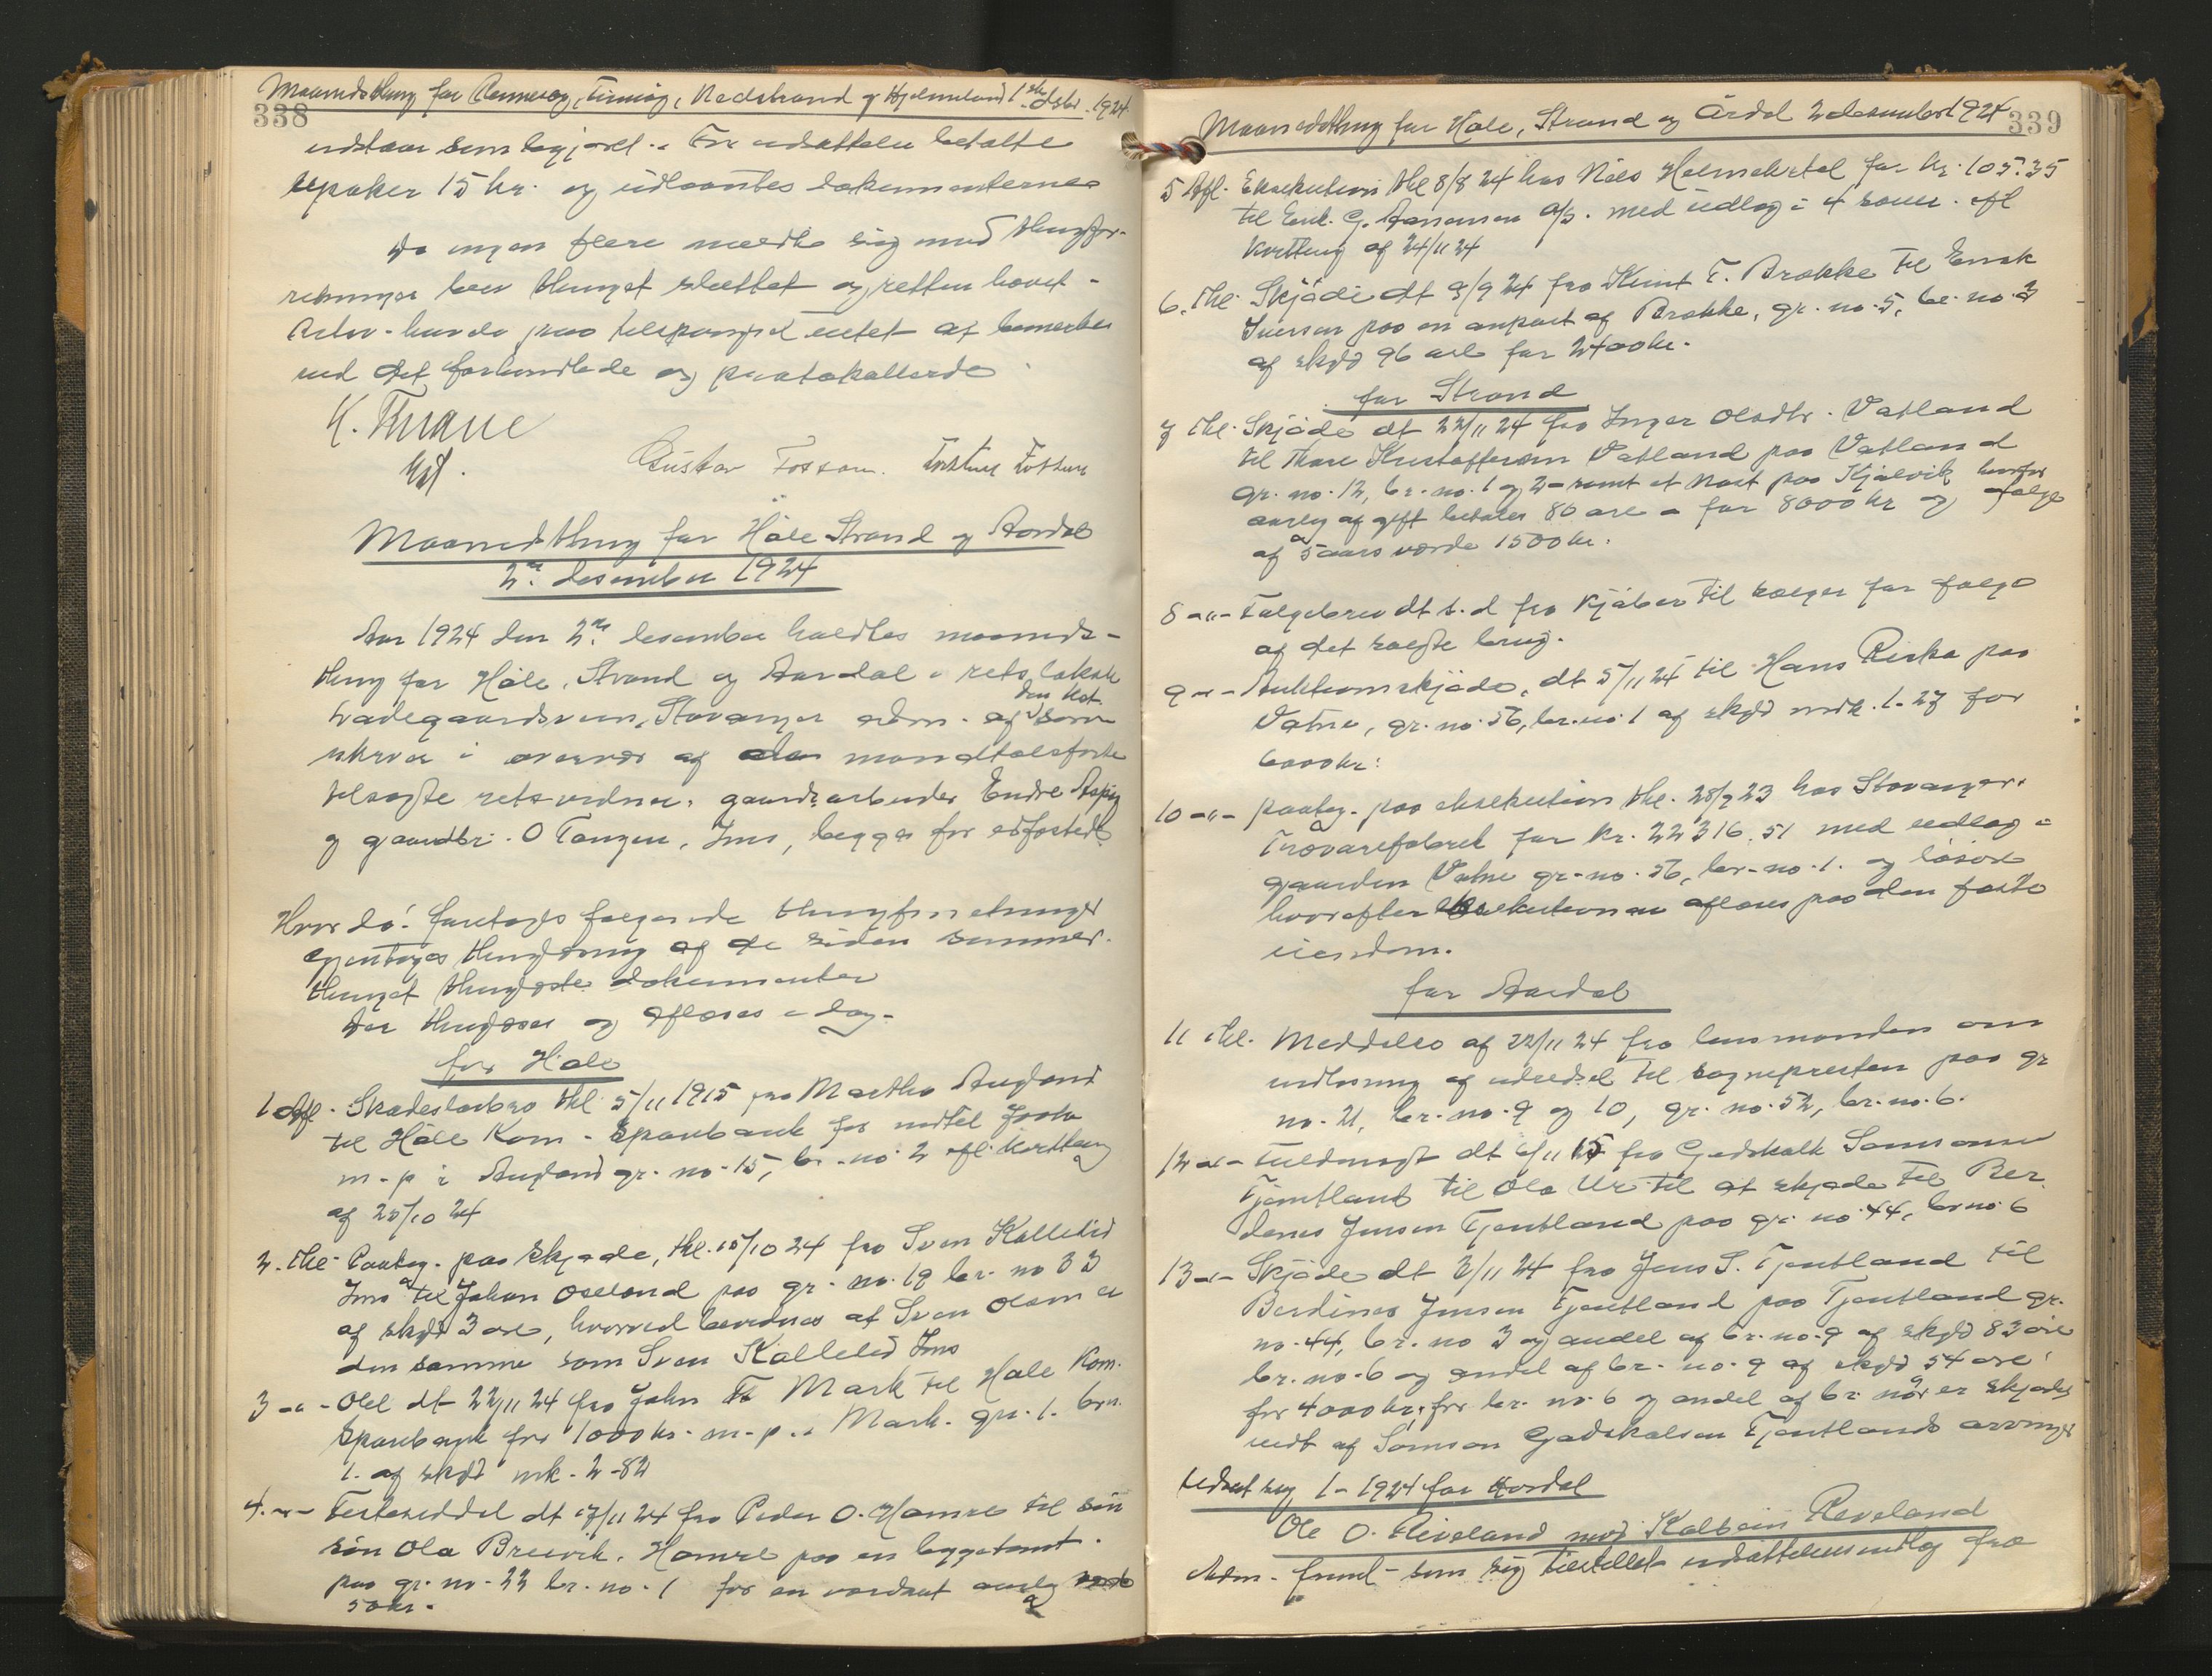 Maanedsthing for Rennesøy, Finnøy, Nedstrand og Hjelmeland 1ste dsbr. 1924
338
udstaar som begjært. For udsættelse betalte
15 kr. og udlaantes dokumenterne
Da ingen flere meldte sig med thingfor-
retninger blev thinget sluttet og retten hævet -
havde paa tilspørgsel intet at bemerke
ved det forhandlede og protokollerede
K. Thrane
Gustav Fossan.
Maanedsthing for Høle Strand og Aardal
2n. desember 1924
Aar 1924 den 2n. desember holdtes maaneds-
thing for Høle, Strand og Aardal i retslokale
Ladegaardsveien, Stavanger adm. af den kst. sorn
skriver i overvær af de mandtalsførte
tilsagte retsvidner, gaardsarbeider Endre Aspøy
og gaardbr. O Tangen, Ims, begge før edfæstede
Hvorda: foretages følgende thingforretninger
gjentages thinglæsning af de siden sommer-
thinget thinglæste dokumenter
Der thinglæses og aflæses i dag -
for Høle
1 Afl. Skadesløsbrev thl 5/11 1915 fra Martha Auglend
til Høle Kom. Sparebank for
m. p i Auglend gr. no. 15, br. no. 2 efl. kvittering
af 20/10 24
2. Thl. Paateg. paa skjøde, thl. 10/10 24 fra Sven Kallelid
Ims til Johan Oseland paa gr. no. 19 br. no 33
af skyld 3 øre, hvorved bevidnes at Sven Olsen er
den samme som Sven Kallelid Ims
3 -"- Obl dt 22/11 24 fra John T Mark til Høle Kom.
Sparebank for 1000 kr. m. p. i Mark. gn. 1. brn.
1. af skyld mk. 2-82
4. -"- Festeseddel dt 17/11 24 fra Peder O. Hamre til sin
søn Ola Breivik, Hamre paa en byggetomt
paa gr. no. 22 br. no. 1 for en aarlig
50 kr.
Maanedsthing for Høle, Strand og Årdal 2 desember 1924
339
5 Afl. Eksekution thl 8/8 24 hos Nils Holmekvtel for kr. 105.35
til Enk. G. Aanensen A/S. med udlæg i 4 sauer. efl
kvittering af 24/11 24
6. Thl. Skjøde dt 9/9 24 fra Knut T. Brække til Enok
Iversen paa en anpart af Brække, gr. no. 5, br. no. 3
af skyld 96 øre for 2400 kr.
for Strand
7 Thl. Skjøde dt 22/11 24 fra Inger Olsdtr. Vatland
til Thore Kristoffersen Vatland paa Vatland
gr. no. 12, br. no. 1 og 2 - samt et nøst paa Kjølvik hvorfor
aarlig afgift betales 80 øre - for 8000 kr og følge
af 5 aars værde 1500 kr.
8 -"- Følgebrev dt s. d fra kjøber til sælger for følge
af det solgte brug.
9 -"- Auktionsskjøde, dt 5/11 24 til Hans Riska paa
Vatne, gr. no. 56, br. no. 1 af skyld mrk. 1.27 for
6000 kr.
10 -"- Paateg. paa eksekution thl. 28/9 23 hos Stavanger
Trævarefabrik for kr. 22316.51 med udlæg i
gaarden Vatne gr. no. 56, br. no. 1. og løsøre
hvorefter eksekutionen aflæses paa den faste
eiendom.
for Aardal
11 Thl. Meddelse af 22/11 24 fra lensmanden om
indløsning af udredsel til sognepresten paa gr
no. 21, br. no. 9 og 10, gr. no. 52, br. no. 6.
12 -"- Fuldmagt dt 6/11 15 fra Gadskalk Samsonsen
Tjentland til Ola Ur til at skjøde til Ber-
dines Jensen Tjentland paa gr. no 44, br no 6
13 -"- Skjøde dt 3/11 24 fra Jens S. Tjentland til
Berdines Jensen Tjentland paa Tjentland gr.
no. 44, br. no 3 og andel af br. no. 9 af skyld 83 øre
br. no. 6 og andel af br. no. 9 af skyld 54 øre
for 4000 kr, for br. no. 6 og andel af br no 9 er skjødet
udst af Samson Gadskalksen Tjentlands arvinger
Udsat sag 1 - 1924 for Aardal
Ole O. Riveland mod Kolbein Riveland
Adm. freml. som sig bestillet udsættelsesindlæg fra